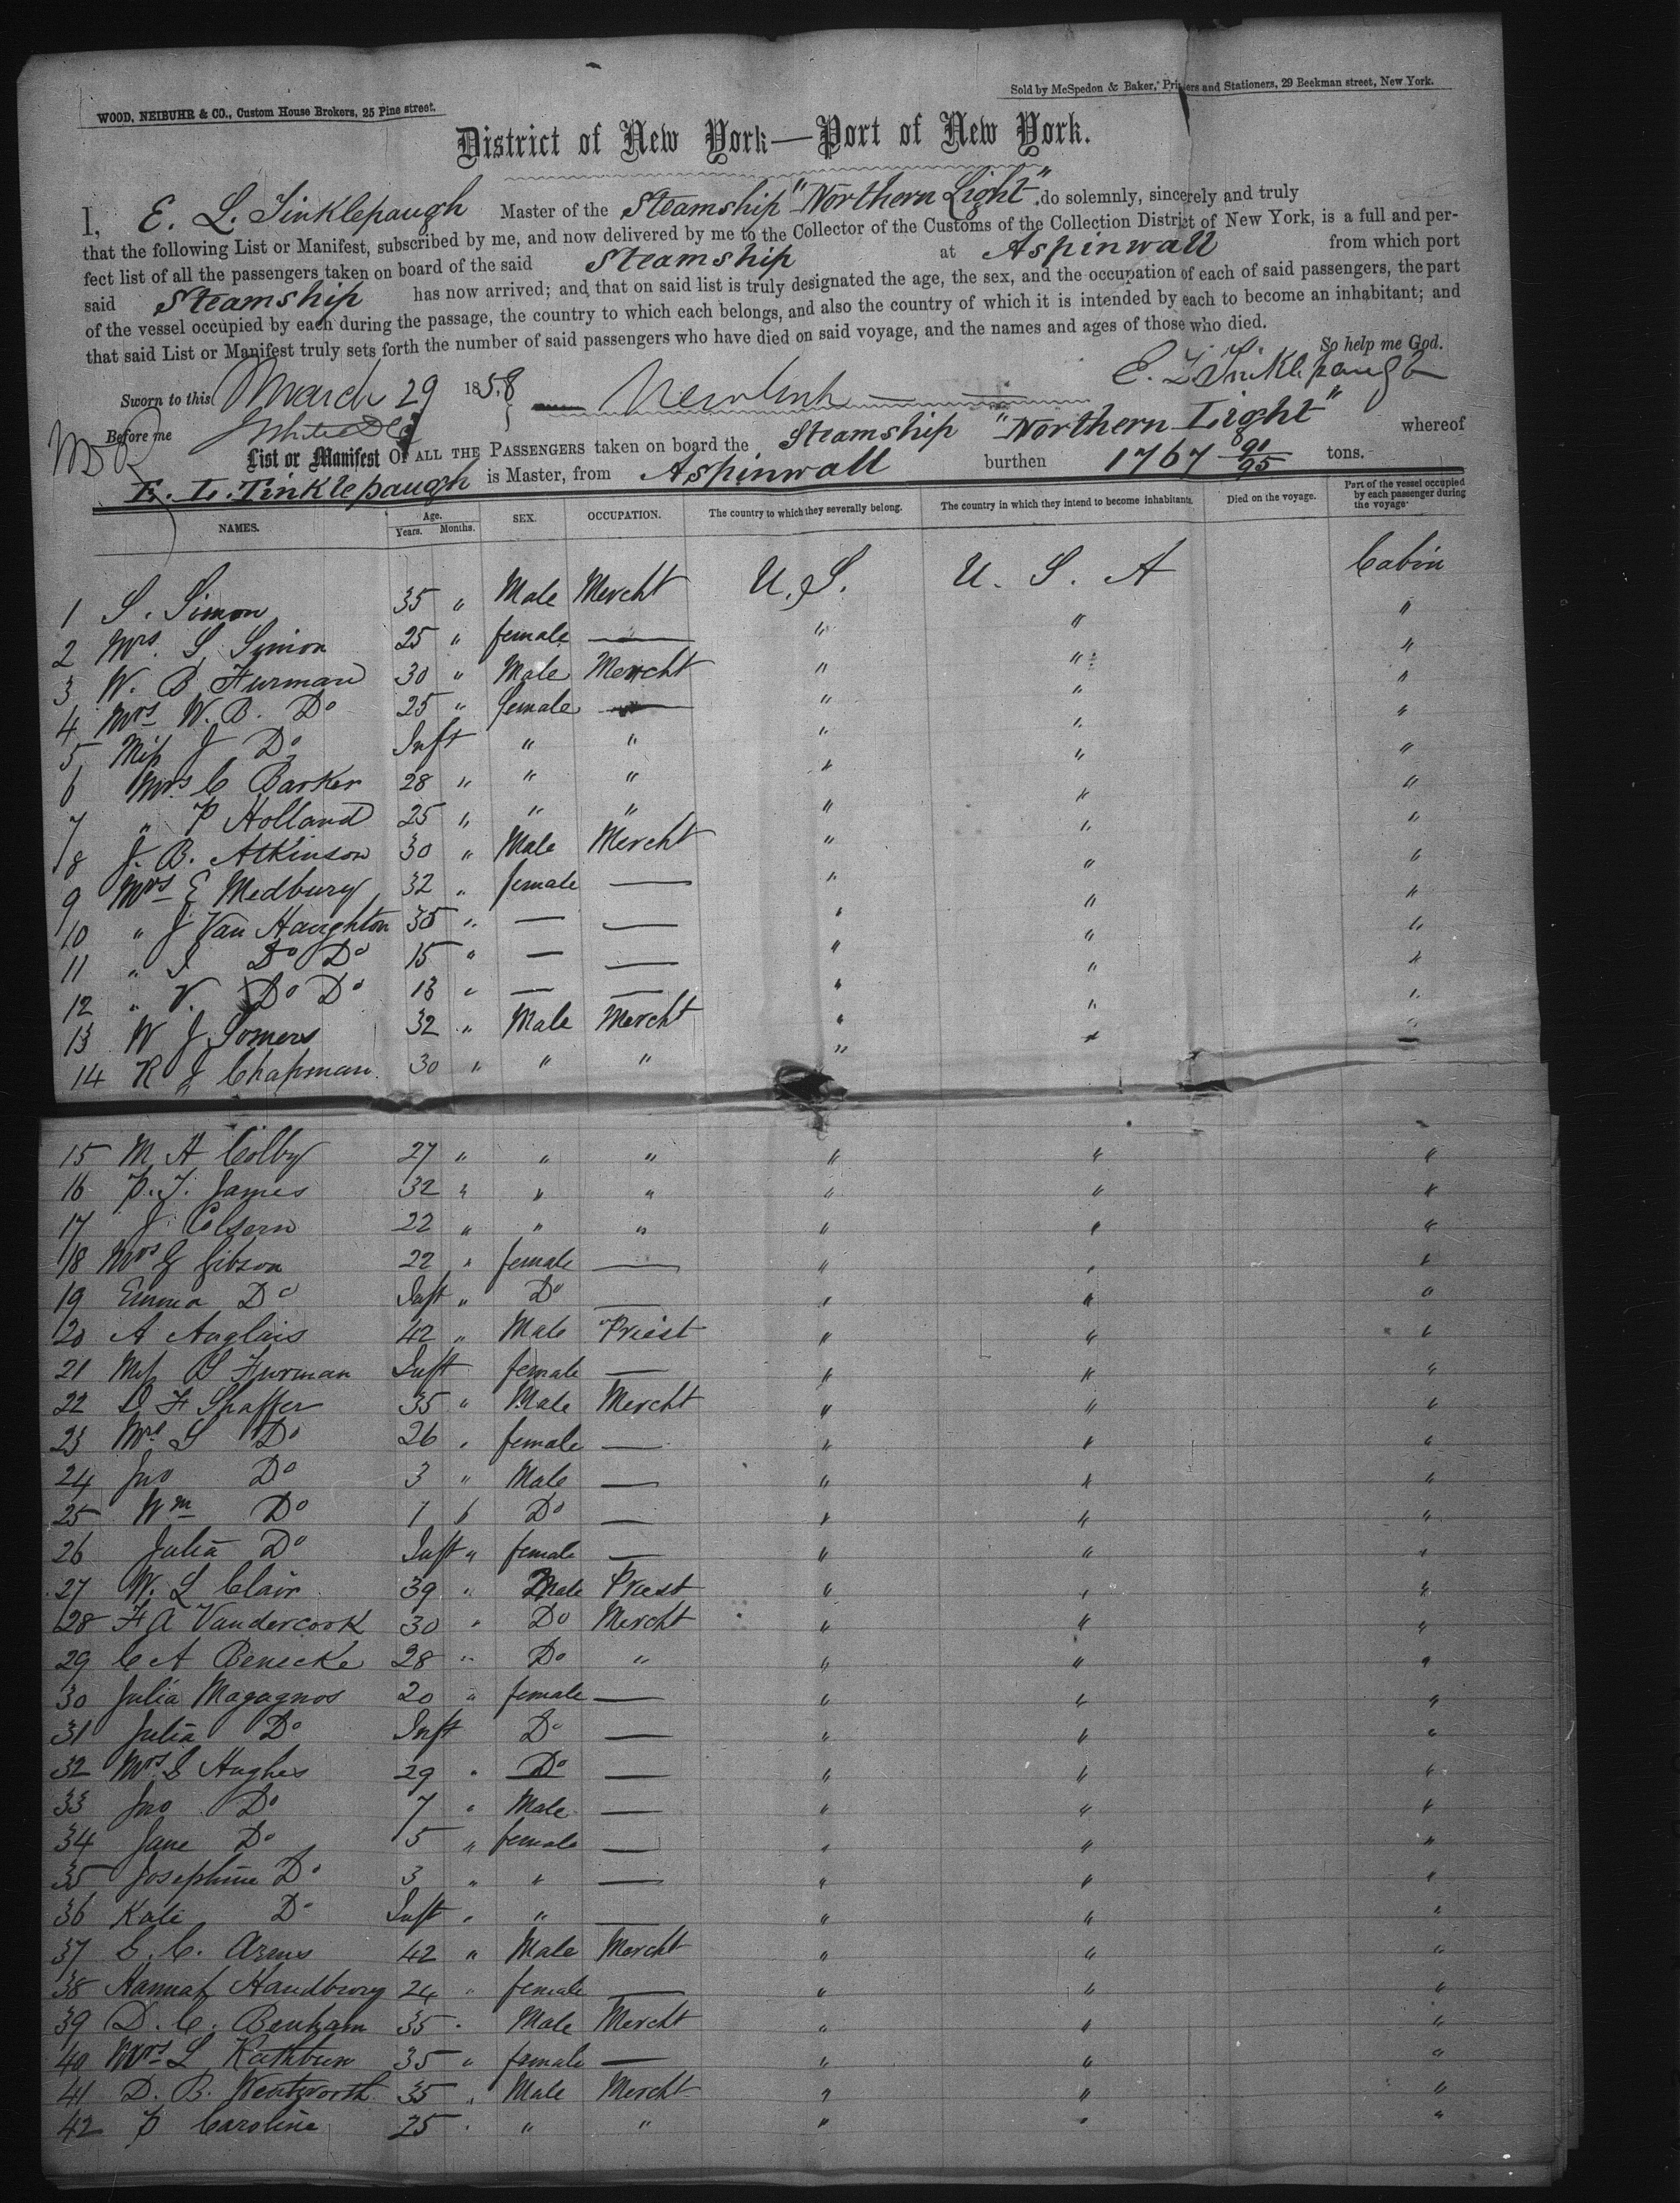 WOOD, NEIBUHR & CO., Custom House Brokers, 25 Pine street.
Sold by McSpedon & Baker, Printers and Stationers, 29 Beekman street, New York.
District of New York—Port of New York.
I, E. L. Tinklepaugh Master of the Steamship "Northern Light" do solemnly, sincerely and truly
that the following List or Manifest, subscribed by me, and now delivered by me to the Collector of the Customs of the Collection District of New York, is a full and per-
fect list of all the passengers taken on board of the said Steamship at Aspinwall from which port
said Steamship has now arrived; and that on said list is truly designated the age, the sex, and the occupation of each of said passengers, the part
of the vessel occupied by each during the passage, the country to which each belongs, and also the country of which it is intended by each to become an inhabitant; and
that said List or Manifest truly sets forth the number of said passengers who have died on said voyage, and the names and ages of those who died.
So help me God.
Sworn to this March 29 1858
E. L. Tinklepaugh
Before me
List or Manifest OF ALL THE PASSENGERS taken on board the Steamship "Northern Light" whereof
E. L. Tinklepaugh is Master, from Aspinwall burthen 1767 90/95 tons.
NAMES. Age. Years. Months. SEX. OCCUPATION. The country to which they severally belong. The country in which they intend to become inhabitants. Died on the voyage. Part of the vessel occupied by each passenger during the voyage.
1 S. Simon 35 " Male Mercht U.S. U. S. A Cabin
2 Mrs. S. Simon 25 " female — " " "
3 W. B Furman 30 " Male Mercht " " "
4 Mrs W. B. Do 25 " female — " " "
5 Miss J Do Inft " " " " "
6 Mrs C Barker 28 " " " " " "
7 " P Holland 25 " " " " " "
8 J. B. Atkinson 30 " Male Mercht " " "
9 Mrs E Medbury 32 " female — " " "
10 " J Van Haughton 35 " — — " " "
11 " I Do Do 15 " — — " " "
12 " V. Do Do 13 " — — " " "
13 W J Somers 32 " Male Mercht " " "
14 R J Chapman 30 " " " " " "
15 M H Colby 27 " " " " " "
16 P. T. James 32 " " " " " "
17 J. Colsern 22 " " " " " "
18 Mrs G Gibson 22 " female — " " "
19 Emma Do Inft " Do — " " "
20 A Anglais 42 " Male Priest " " "
21 Miss B Furman Inft female — " " "
22 D F Shaffer 35 " Male Mercht " " "
23 Mrs S Do 26 " female — " " "
24 Jno Do 3 " Male — " " "
25 Wm Do 1 6 Do — " " "
26 Julia Do Inft " female — " " "
27 W. L Clair 39 " Male Priest " " "
28 F A Vandercook 30 " Do Mercht " " "
29 C A Benecke 28 " Do " " " "
30 Julia Magagnos 20 " female — " " "
31 Julia Do Inft Do — " " "
32 Mrs S Hughes 29 " Do — " " "
33 Jno Do 7 " Male — " " "
34 Jane Do 5 " female — " " "
35 Josephine Do 3 " " — " " "
36 Kate Do Inft " " — " " "
37 E. C. Arms 42 " Male Mercht " " "
38 Hannah Handbury 24 " female — " " "
39 D. C. Benham 35 " Male Mercht " " "
40 Mrs L Rathbun 35 " female — " " "
41 D. B. Wentworth 35 " Male Mercht " " "
42 P Caroline 25 " " " " " "